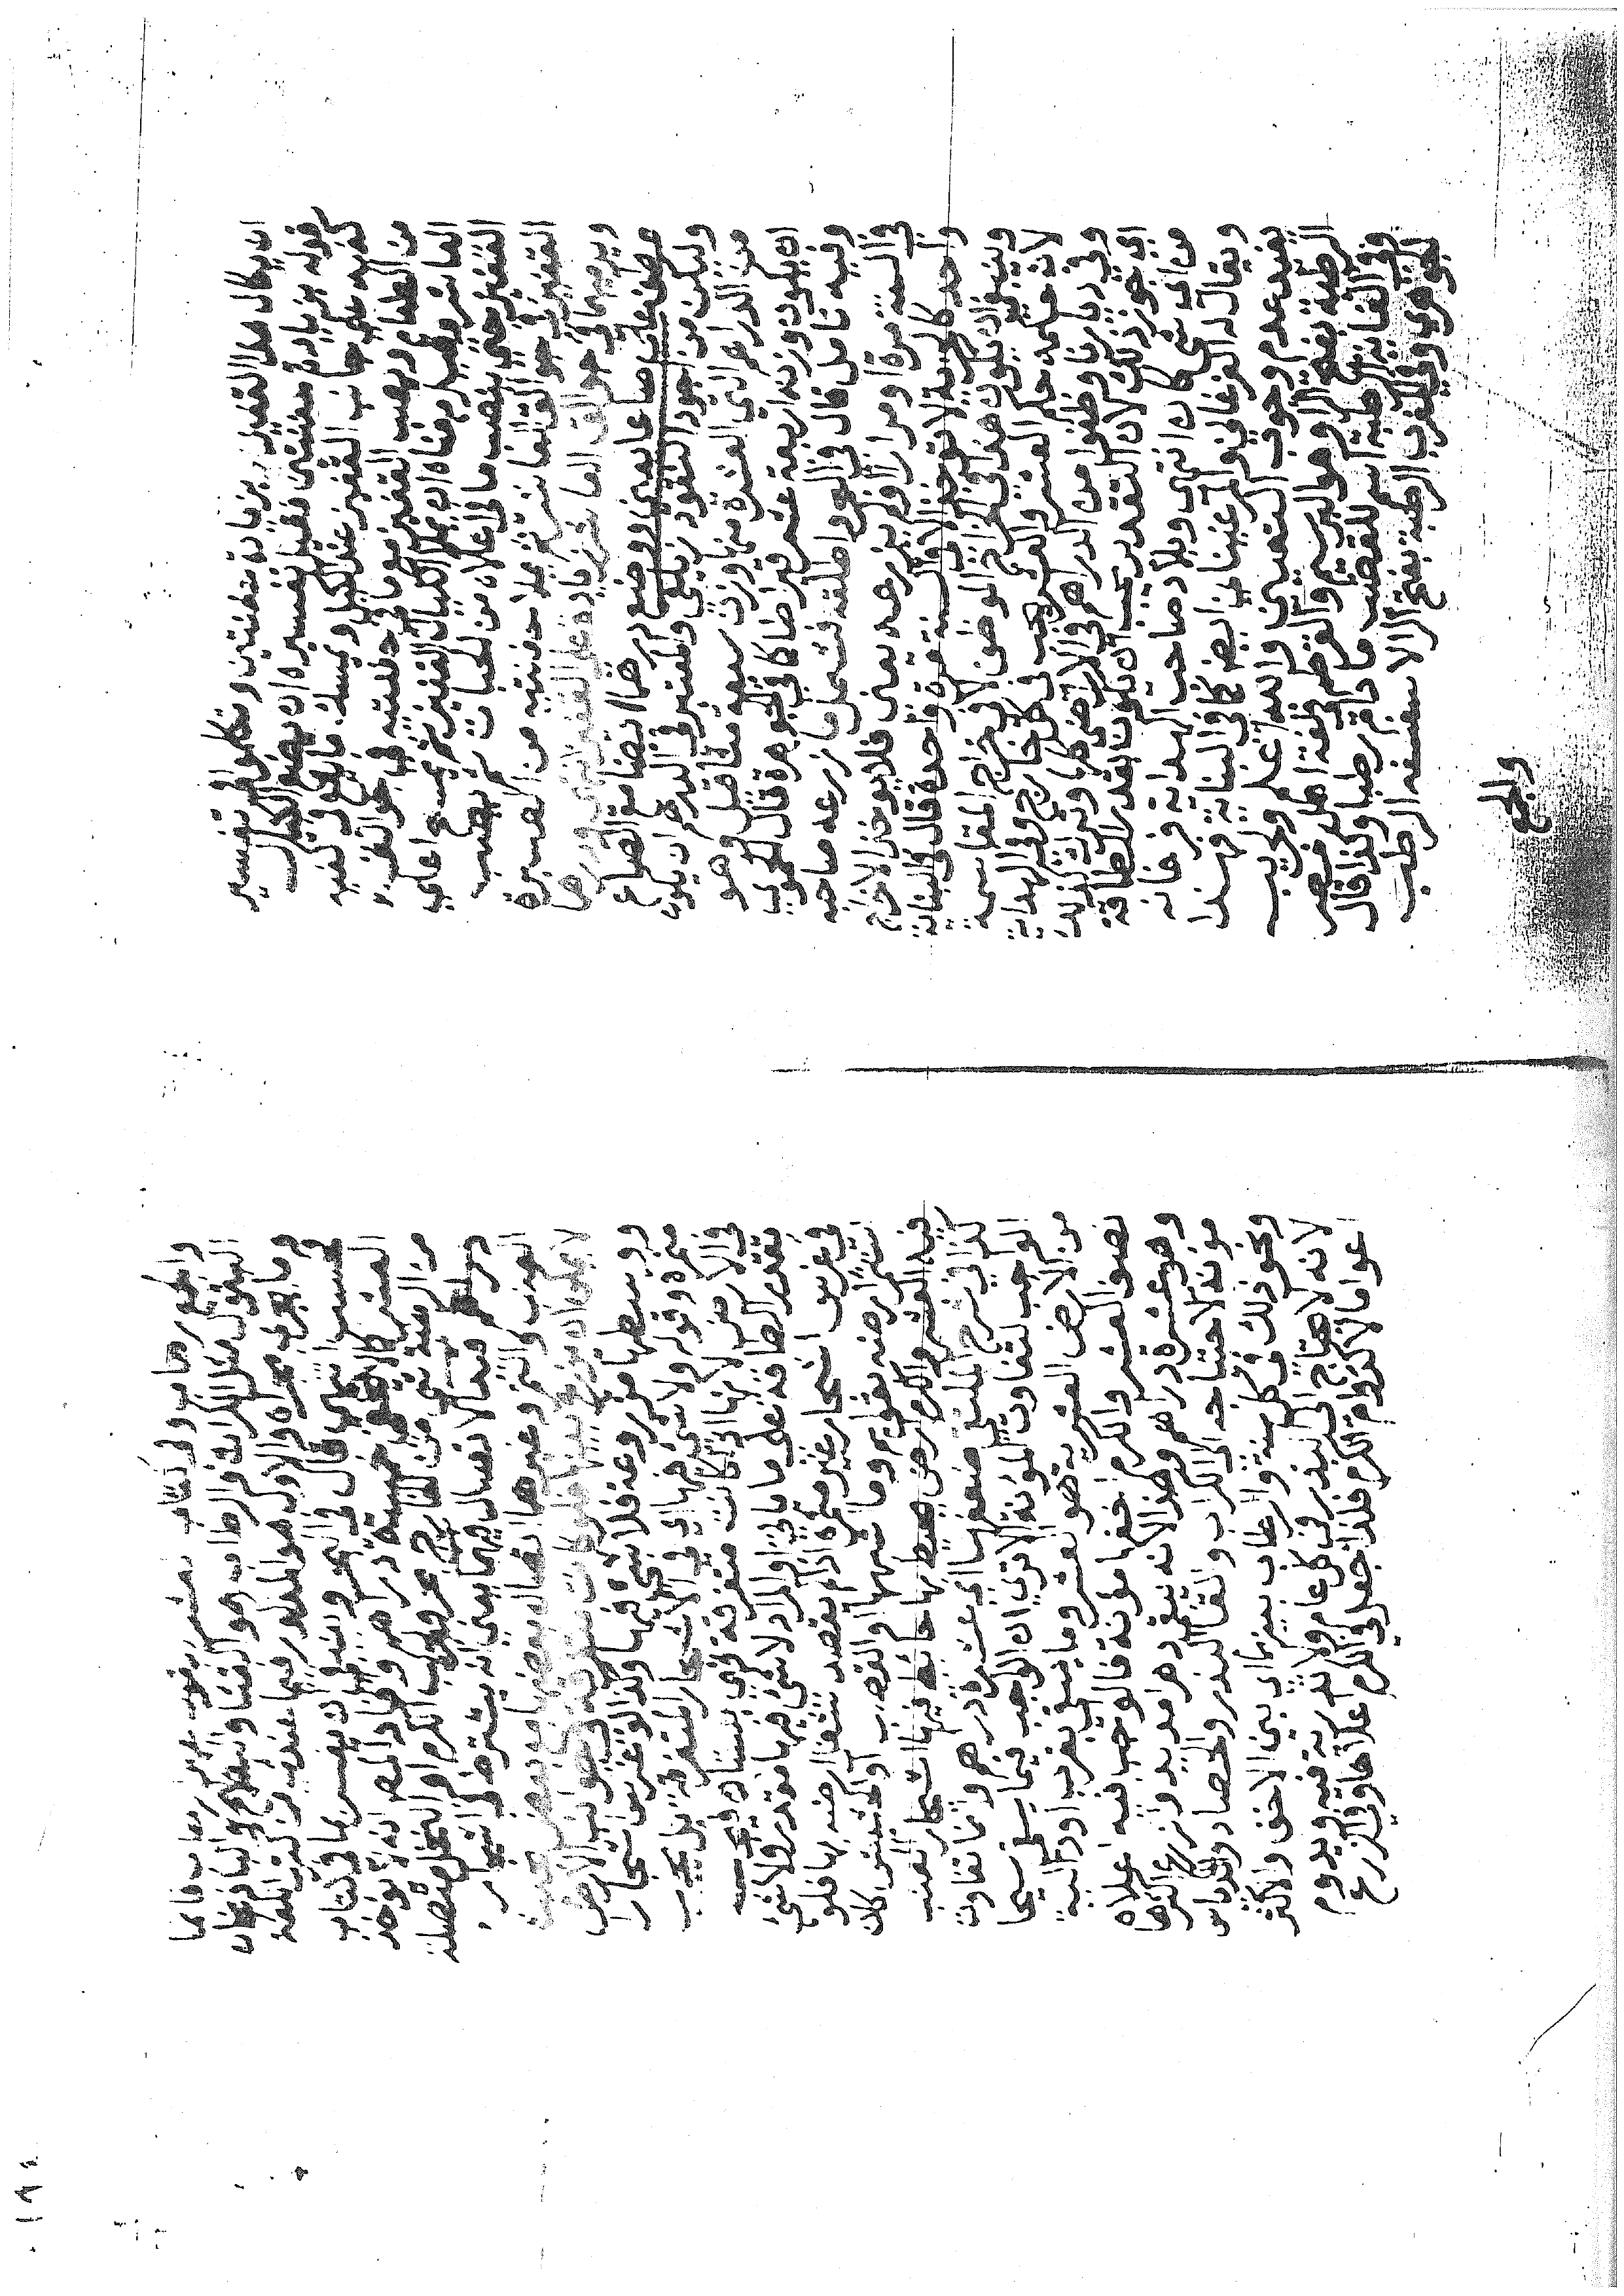 ان يكال هذا القفيز بزيادة حفنتين وتكلموا في تفسير
قوله بزيادة حفنتين فقيل تفسيره ان يضع الكيال
كفيه على جانبي القفيز عند الكيل ويمسك ما يقع في كفيه
من الطعام ويصب القفيز وما في حفنتيه في جوالق
العاشر وقيل معناه ان يملأ الكيال القفيز ثم يمسح اعلى
القفيز حتى ينصب ما في اعلاه من الحبات ثم يصب
القفيز في جوالق العاشر ثم يملا حفنتيه من الصبرة
ويرميهما في جوالق العاشر زيادة على القفيز انتهى ودرهما
عطف على صاعا يعني ووضع درهما ايضا مع الصاع
وليكن من اجود النقود زيلعي والمعتبر في الدرهم ان يكون
من الدراهم التي العشرة منها وزن سبعة مثاقيل وهو
ان يكون وزنه اربعة عشر قيراطا كافي الجوهرة قال الحموي
وفيه تامل قال في النهر واطلقه فشمل ما زرعه صاحبه
في السنة مرة او مرارا او لم يزرعه يعني فلا يوخذ الاخراج
واحد كارض الجزية لا توخذ في السنة الا مرة واحدة قال في البناية
وينبغي ان يكون هذا في الخراج الموظف لا في خراج المقاسمة
لانه على حكم العشر والعشر يجب في كل خارج وفي الهداية
وفي ديارنا وظفوا من الدراهم في الاراضي كلها وترك كذلك
اي يجوز ذلك لان التقدير يجب ان يكون بقدر الطاقة
من اي شي كان انتهى وبلاد صاحب الهداية فرغانة
ويقال له الفرغاني والمرغيناني ايضا كافي البناية فهذا
يفيد عدم وجوب التعيين والله اعلم وجريب
الرطبة بفتح الراء وهو البرسيم والقرط في لغة اهل مصر
وفي الغاية الرطبة اسم للقضب ما دام رطبا وكذا قال
الجوهري وفي المغرب الرطبة بفتح الرا الاسفست الرطب
والجمع
والجمع رطاب وفي كتاب العشر البقول غير الرطاب فانما
البقول مثل الكراث والرطاب هو القثا والبطيخ والباذنجان
وما يجري مجراه والاول هو المذكور فيما عندي من كتب اللغة
فحسب انتهى قال في النهر وينبغي ان يفسر بما في كتاب
العشر كالا يخفى خمسة دراهم وافاد المص انه لا يوخذ
من الرطبة شي من الخارج وجريب الكرم او النخل متصلة
يعني انه يشترط في اشجار
العنب والتمر وغيرهما اتصال بعضها ببعض بحيث
لا يمكن ان يزرع بينها فلو كانت متفرقة في جوانب الارض
ووسطها مزروعة فلا شي فيها وكذا لو غرس اشجارا
غير مثمرة وقوله ولا شي فيها اي في الاشجار المتفرقة بل يجب
في الارض لانها اذا كانت متفرقة فهي بستان فيجب
بقدر الطاقة على ما ياتي او المراد لا شي فيها مقدر ولا شي
في غرس اشجار غير مثمرة اذا لم يقصد شغل ارضه بها فلو
شغل ارضه بقوايم وما شبهها والقصب او الحشيش كان
فيه العشر والكرم ارض يحيط بها حائط فيها اشجار العنب
كذا في شرح الملتقى ضعفها اي عشرة دراهم وانما تفاوت
الواجب لتفاوت المؤنة الا ترى ان الواجب فيما سقي سيحا
من الارض العشرية هو العشر وما سقي بغرب او دالية
نصف العشر والكرم اخفها مؤنة فالواجب فيه اعلاه
وهو عشرة دراهم وهذا لانه يبقى دهرا مديدا والزرع اكثرها
مؤنة لاحتياجه الى الكراب والقا البذر والحصاد والدياس
ونحو ذلك في كل سنة والرطاب بينهما اي بين الاخف والاكثر
لانه لا يحتاج الى البذر في كل عام ولا تذرية فيه ويدوم
اعواما لا كدوام الكرم فلذا جعل في الكرم اعلاها وفي الزرع